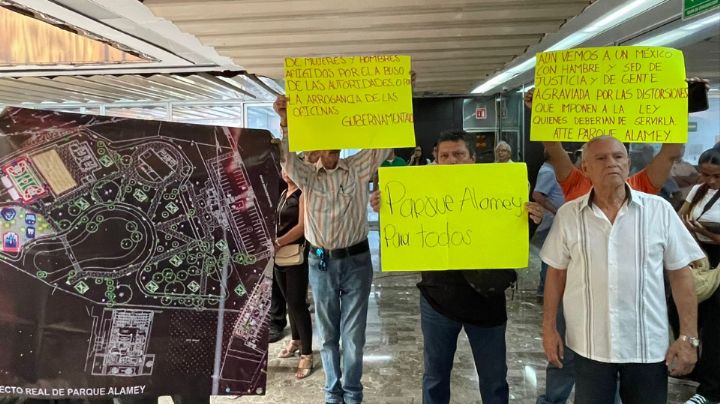 DE MUJERES Y HOMBRES
AFLIGIDOS POR EL ABUSO
DE LAS AUTORIDADES. O POR
LA ARROGANCIA DE LAS
OFICINAS
GUBERNAMENTAL
AUN VEMOS A UN MÉXICO
CON HAMBRE Y SED DE
JUSTICIA Y DE GENTE
AGRAVIADA POR LAS DISTORSIONES
QUE IMPONEN A LA LEY
QUIENES DEBERIAN DE SERVIRLA.
ATTE PARQUE ALAMEY
Parque Alamey
Para todos
ECTO REAL DE PARQUE ALAMEY